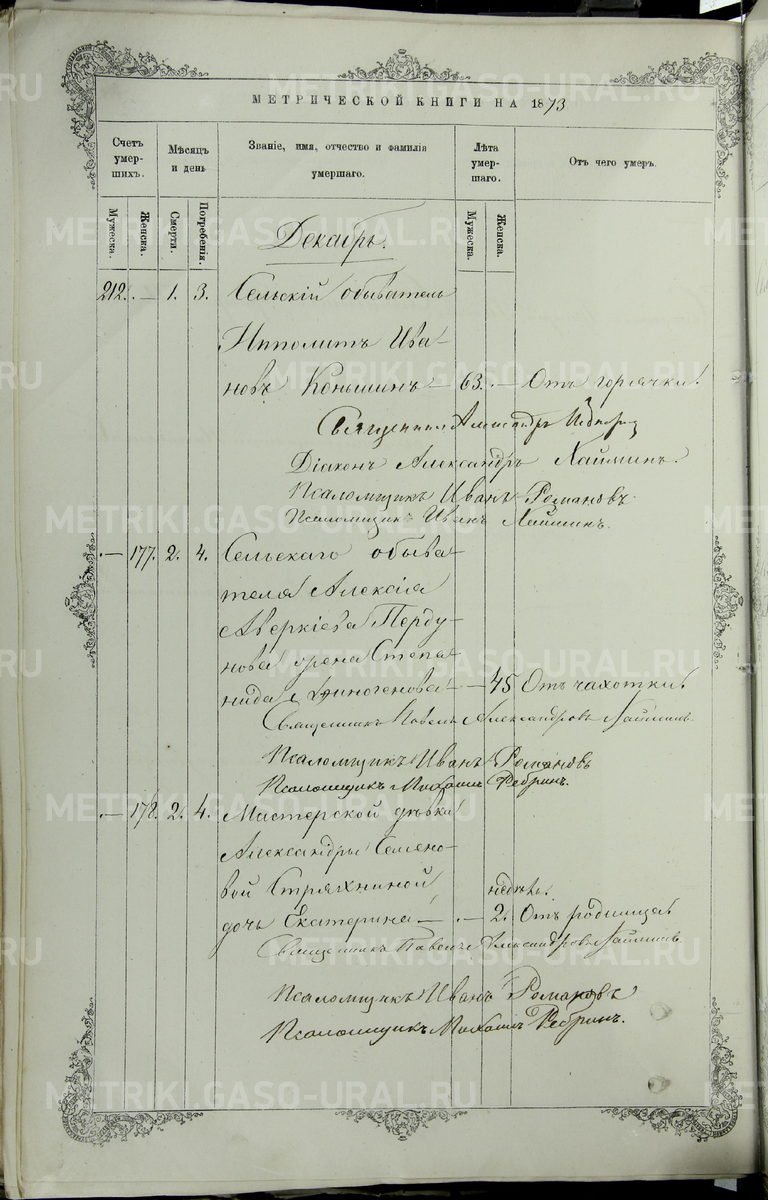 МЕТРИЧЕСКОЙ КНИГИ НА 1873
Счетъ умер- шихъ.
Мѣсяцъ и день
Званіе, имя, отчество и фамилія умершаго.
Лѣта умер- шаго.
Отъ чего умеръ.
Мужеска.
Женска.
Смерти.
Погребенія.
Мужеска.
Женска.
Декабрь.
212. — 1. 3. Сельскій обыватель
Ипполитъ Ива-
новъ Коньшинъ — 63. — Отъ горячки.
Священникъ Александръ
Діаконъ Александръ Хайминъ.
Псаломщикъ Иванъ Романовъ
Псаломщикъ Иванъ Хайминъ.
— 177. 2. 4. Сельскаго обыва-
теля Алексія
АверкіеваПерду-
нова жена Степа-
нида — 45 Отъ чахотки.
Священникъ Павелъ Александровъ
Псаломщикъ Иванъ Романовъ
Псаломщикъ Михаилъ Ребринъ.
— 178. 2. 4. Мастерской дѣвки
Александры Семено-
вой Стряхниной
недѣль.
дочь Екатерина — — 2. Отъ родимца.
Священникъ Павелъ Александровъ
Псаломщикъ Иванъ Романовъ
Псаломщикъ Михаилъ Ребринъ.
METRIKI.GASO-URAL.RU